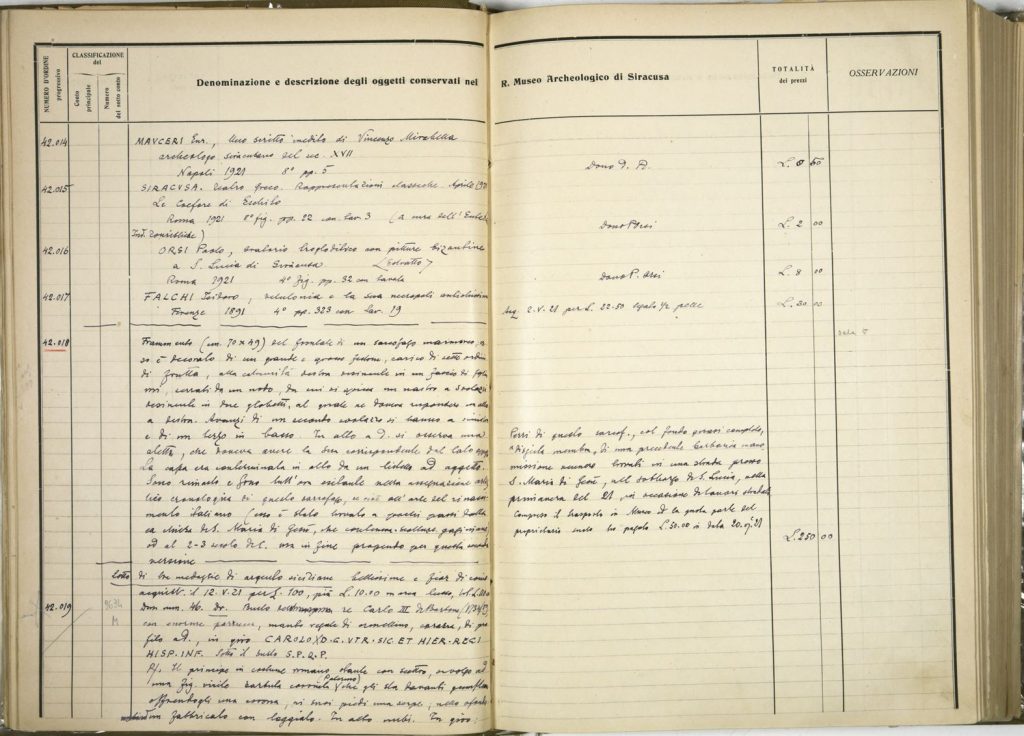 NUMERO D'ORDINE
progressivo
CLASSIFICAZIONE
del
Conto
principale
Numero
del sotto conto
Denominazione e descrizione degli oggetti conservati nel R. Museo Archeologico di Siracusa
TOTALITÀ
dei prezzi
OSSERVAZIONI
42.014 MAUCERI Enr., Uno scritto inedito di Vincenzo Mirabella
archeologo siracusano del sec. XVII
Napoli 1921 8° pp. 5 Dono P. L. 0 50
42.015 SIRACUSA. Teatro Greco. Rappresentazioni classiche. Aprile
Le Coefore di Eschilo
Roma 1921 8° fig. pp. 22 con tav. 3 (a cura dell' Dono P Orsi L. 2 00
42.016 ORSI Paolo, oratorio trogloditico con pitture bizantine
a S. Lucia di Siracusa (Estratto)
Roma 1921 4° fig. pp. 32 con tavola Dono P. Orsi L. 8 00
42.017 FALCHI Isidoro, Vetulonia e la sua necropoli antichissima
Firenze 1891 4° pp. 323 con tav. 19 Acq. 2.V.21 per L. 22.50 legato ½ pelle L. 30 00
42.018 Frammento (cm. 70 x 49) del frontale di un sarcofago marmoreo,
è decorato di un grande e grosso festone, carico di
di frutta, alla estremità destra desinente in un fascio di
serrati da un nodo, da cui si un nastro a svolazzi
desinente in due globetti, al quale ne doveva rispondere un altro
a destra. Avanzi di un secondo svolazzo si hanno a sinistra
e di un terzo in basso. In alto a d. si osserva una
aletta, che doveva avere la sua corrispondente dal lato
La cassa era contornata in alto da un listello ad aggetto.
Sono rimasto e sono tutt'ora esitante nella assegnazione
cronologica di questo sarcofago, se all'arte del rinascimento
italiano (esso è stato trovato a pochi passi dalla
chiesa di S. Maria di Gesù, che
od al 2-3 secolo d.C. ma in fine propendo per questa seconda
versione
Pezzi di questo sarcof., col fondo quasi completo,
disjecta membra, di una precedente barbarica manomissione
vennero trovati in una strada presso
S. Maria di Gesù, nel sobborgo di S. Lucia, nella
primavera del 21 in occasione di lavori stradali
Compreso il trasporto in Museo ed la quota parte del
proprietario suolo ho pagato L. 50.00 in data 20. 21
L. 250 00
Lotto di tre medaglie di argento siciliane bellissime e fior di conio
acquist. il 12.V.21 per L. 100, più L. 10.00
42.019 9634 M
Diam mm. 46. Dr. Busto re Carlo III di Borbone
con enorme parrucca, manto regale di ermellino, corazza, di profilo
a d., in giro CAROLO D.G.VTR.SIC.ET HIER.REGI
HISP.INF. Sotto il busto S.P.Q.P.
R/. Il principe in costume romano stante con scettro, rivolto ad
una fig. virile (Palermo) che gli sta davanti
offrendogli una corona, ai suoi piedi una serpe, nello sfondo
fabbricato con loggiato. In alto nubi. In giro: